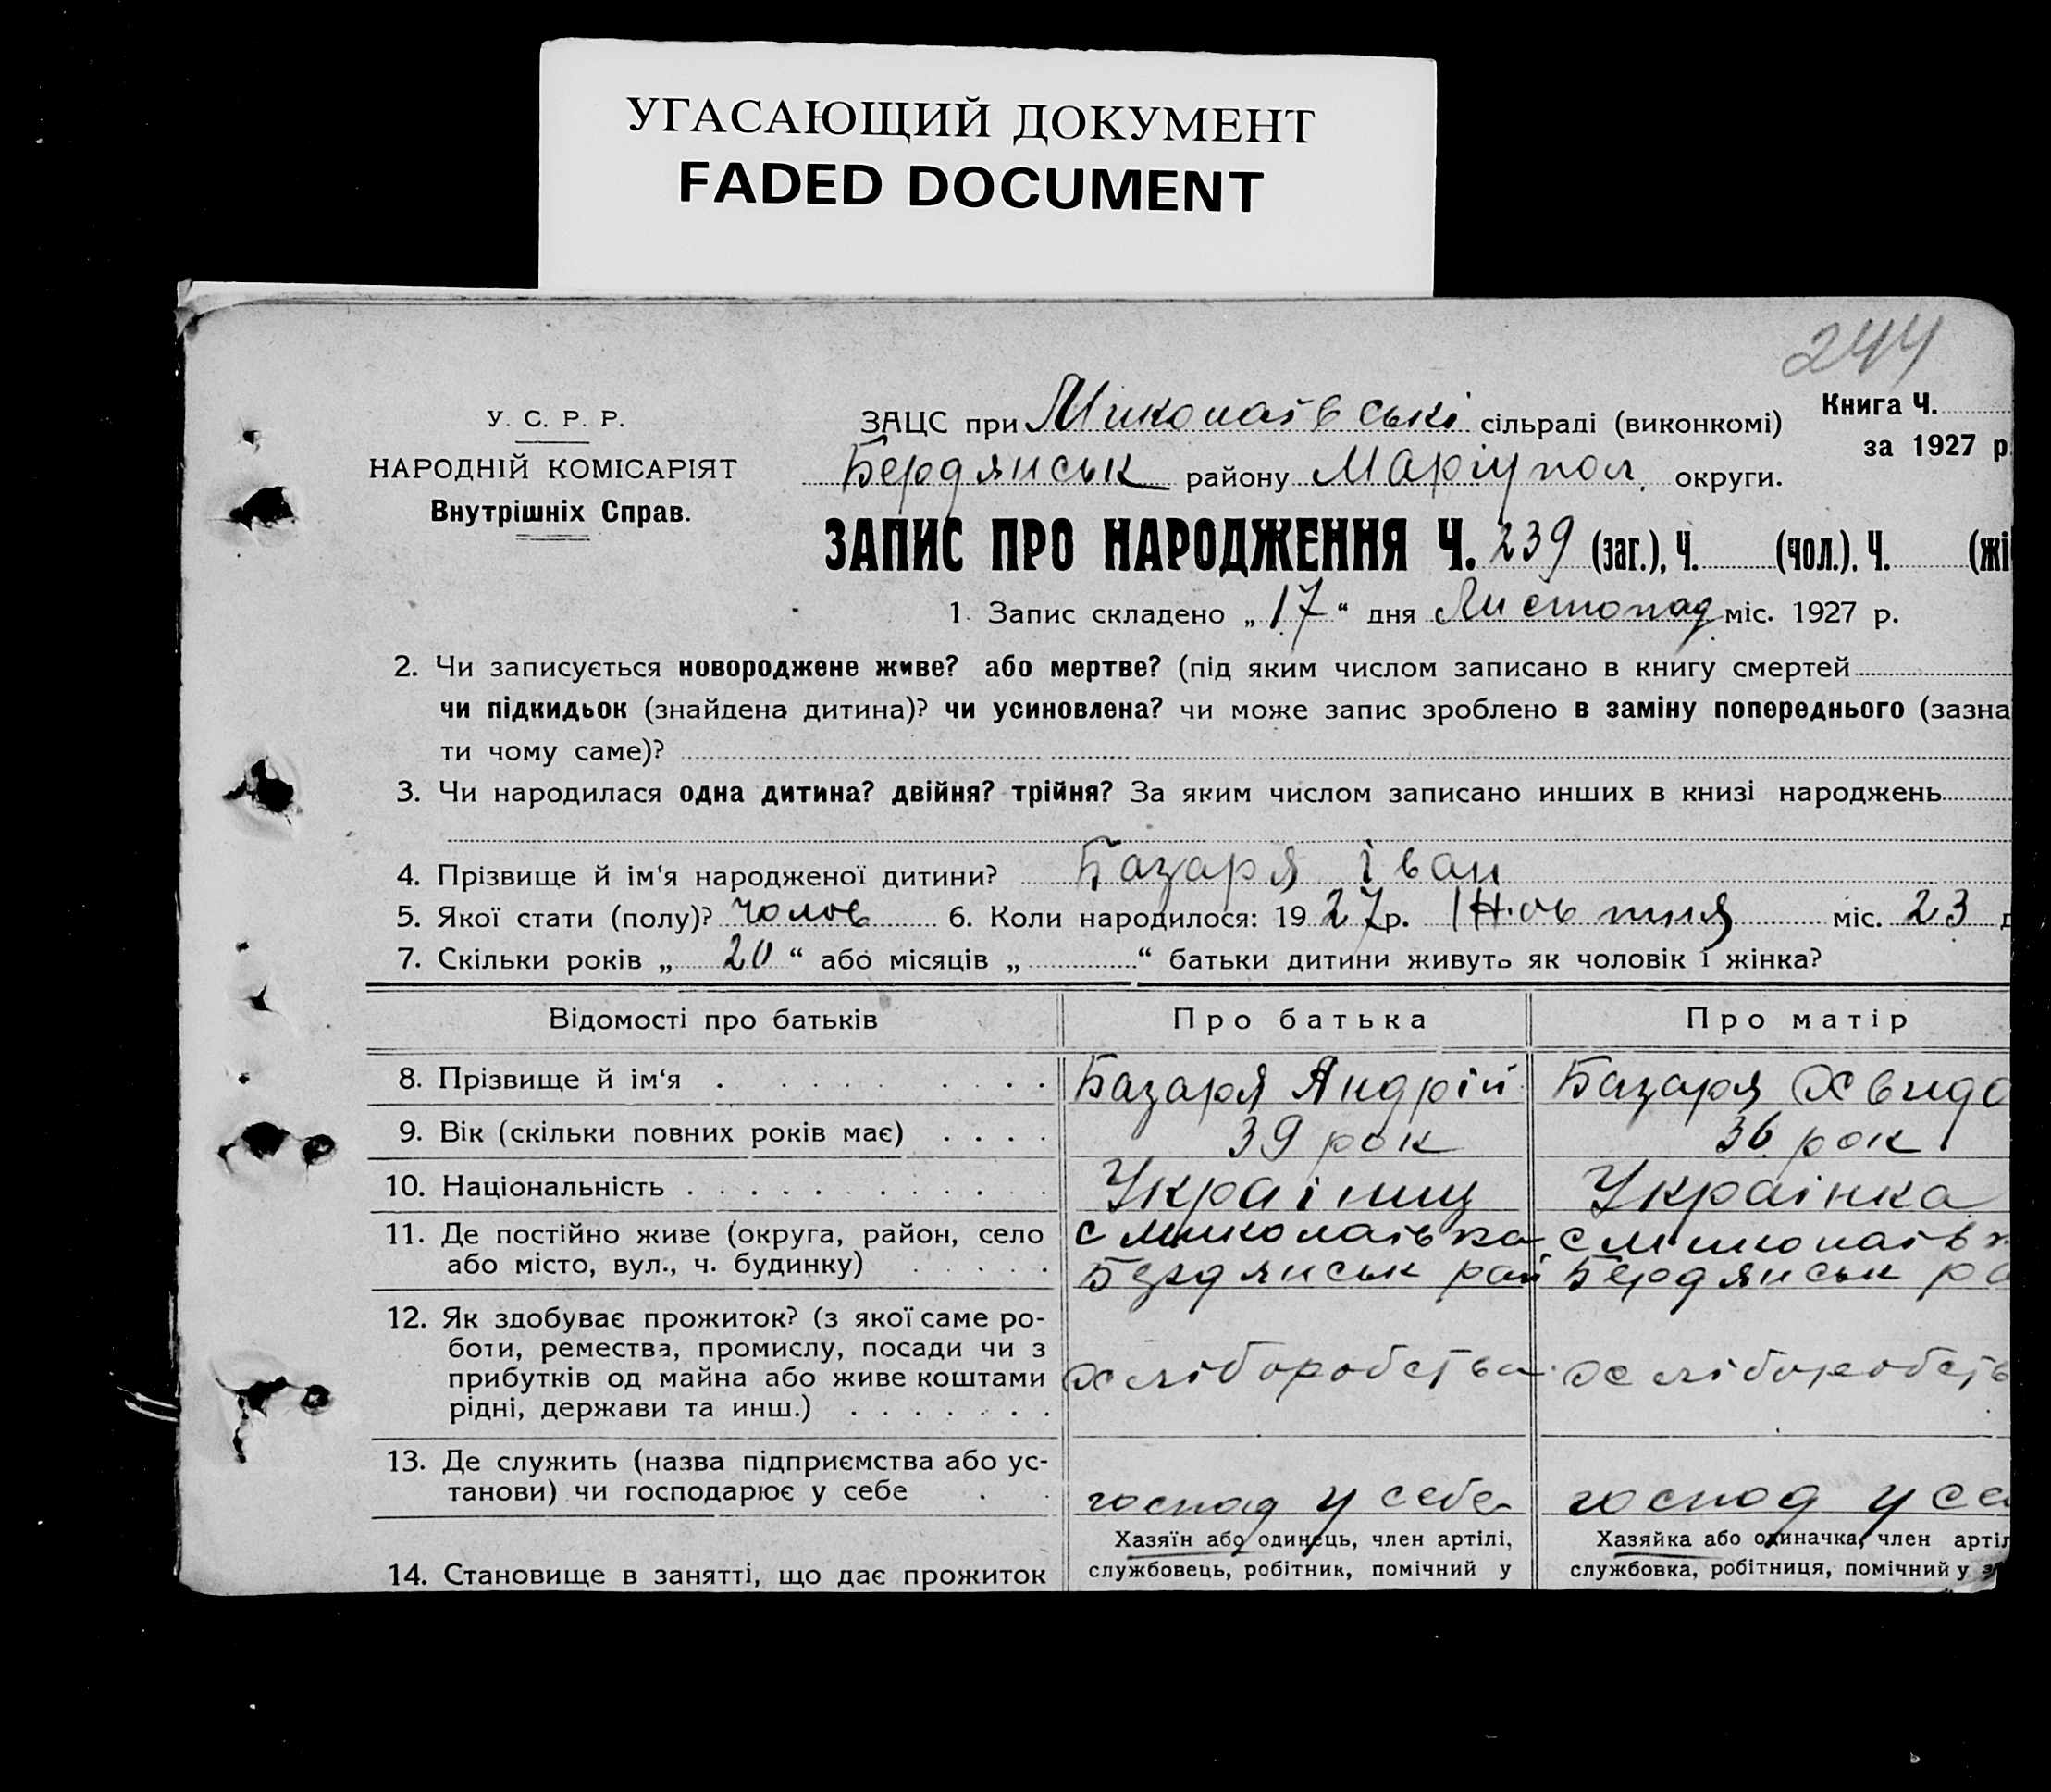 УГАСАЮЩИЙ ДОКУМЕНТ
FADED DOCUMENT
244
У. С. Р. Р.
НАРОДНІЙ КОМІСАРІЯТ
Внутрішніх Справ.
ЗАЦС при Миколаівські сільраді (виконкомі)
Книга Ч.
за 1927 р.
Бердянськ району Маріупол. округи.
ЗАПИС ПРО НАРОДЖЕННЯ Ч. 239 (заг.), Ч. (чол.). Ч. (жі
1. Запис складено „17“ дня Листопад міс. 1927 р.
2. Чи записується новороджене живе? або мертве? (під яким числом записано в книгу смертей
чи підкидьок (знайдена дитина)? чи усиновлена? чи може запис зроблено в заміну попереднього (зазна
ти чому саме)?
3. Чи народилася одна дитина? двійня? трійня? За яким числом записано инших в книзі народжень
4. Прізвище й ім‘я народженої дитини? Базаря Іван
5. Якої стати (полу)? чолов 6. Коли народилося: 1927 р. Жовтня міс. 23 д
7. Скільки років „ 20 “ або місяців „ “ батьки дитини живуть як чоловік і жінка?
Відомості про батьків Про батька Про матір
8. Прізвище й ім‘я Базаря Андрій Базаря
9. Вік (скільки повних років має) 39 рок 36 рок
10. Національність Украіниц Украінка
11. Де постійно живе (округа, район, село с Миколаівка с Миколаівк
або місто, вул., ч. будинку) Бердянськ рай Бердянськ ра
12. Як здобуває прожиток? (з якої саме ро-
боти, ремества, промислу, посади чи з
прибутків од майна або живе коштами хліборобства хліборобств
рідні, держави та инш.)
13. Де служить (назва підприємства або ус-
танови) чи господарює у себе господ у себе господ у се
Хазяїн або одинець, член артілі, Хазяйка або одиначка, член артіл
14. Становище в занятті, що дає прожиток службовець, робітник, помічний у службовка, робітниця, помічний у з